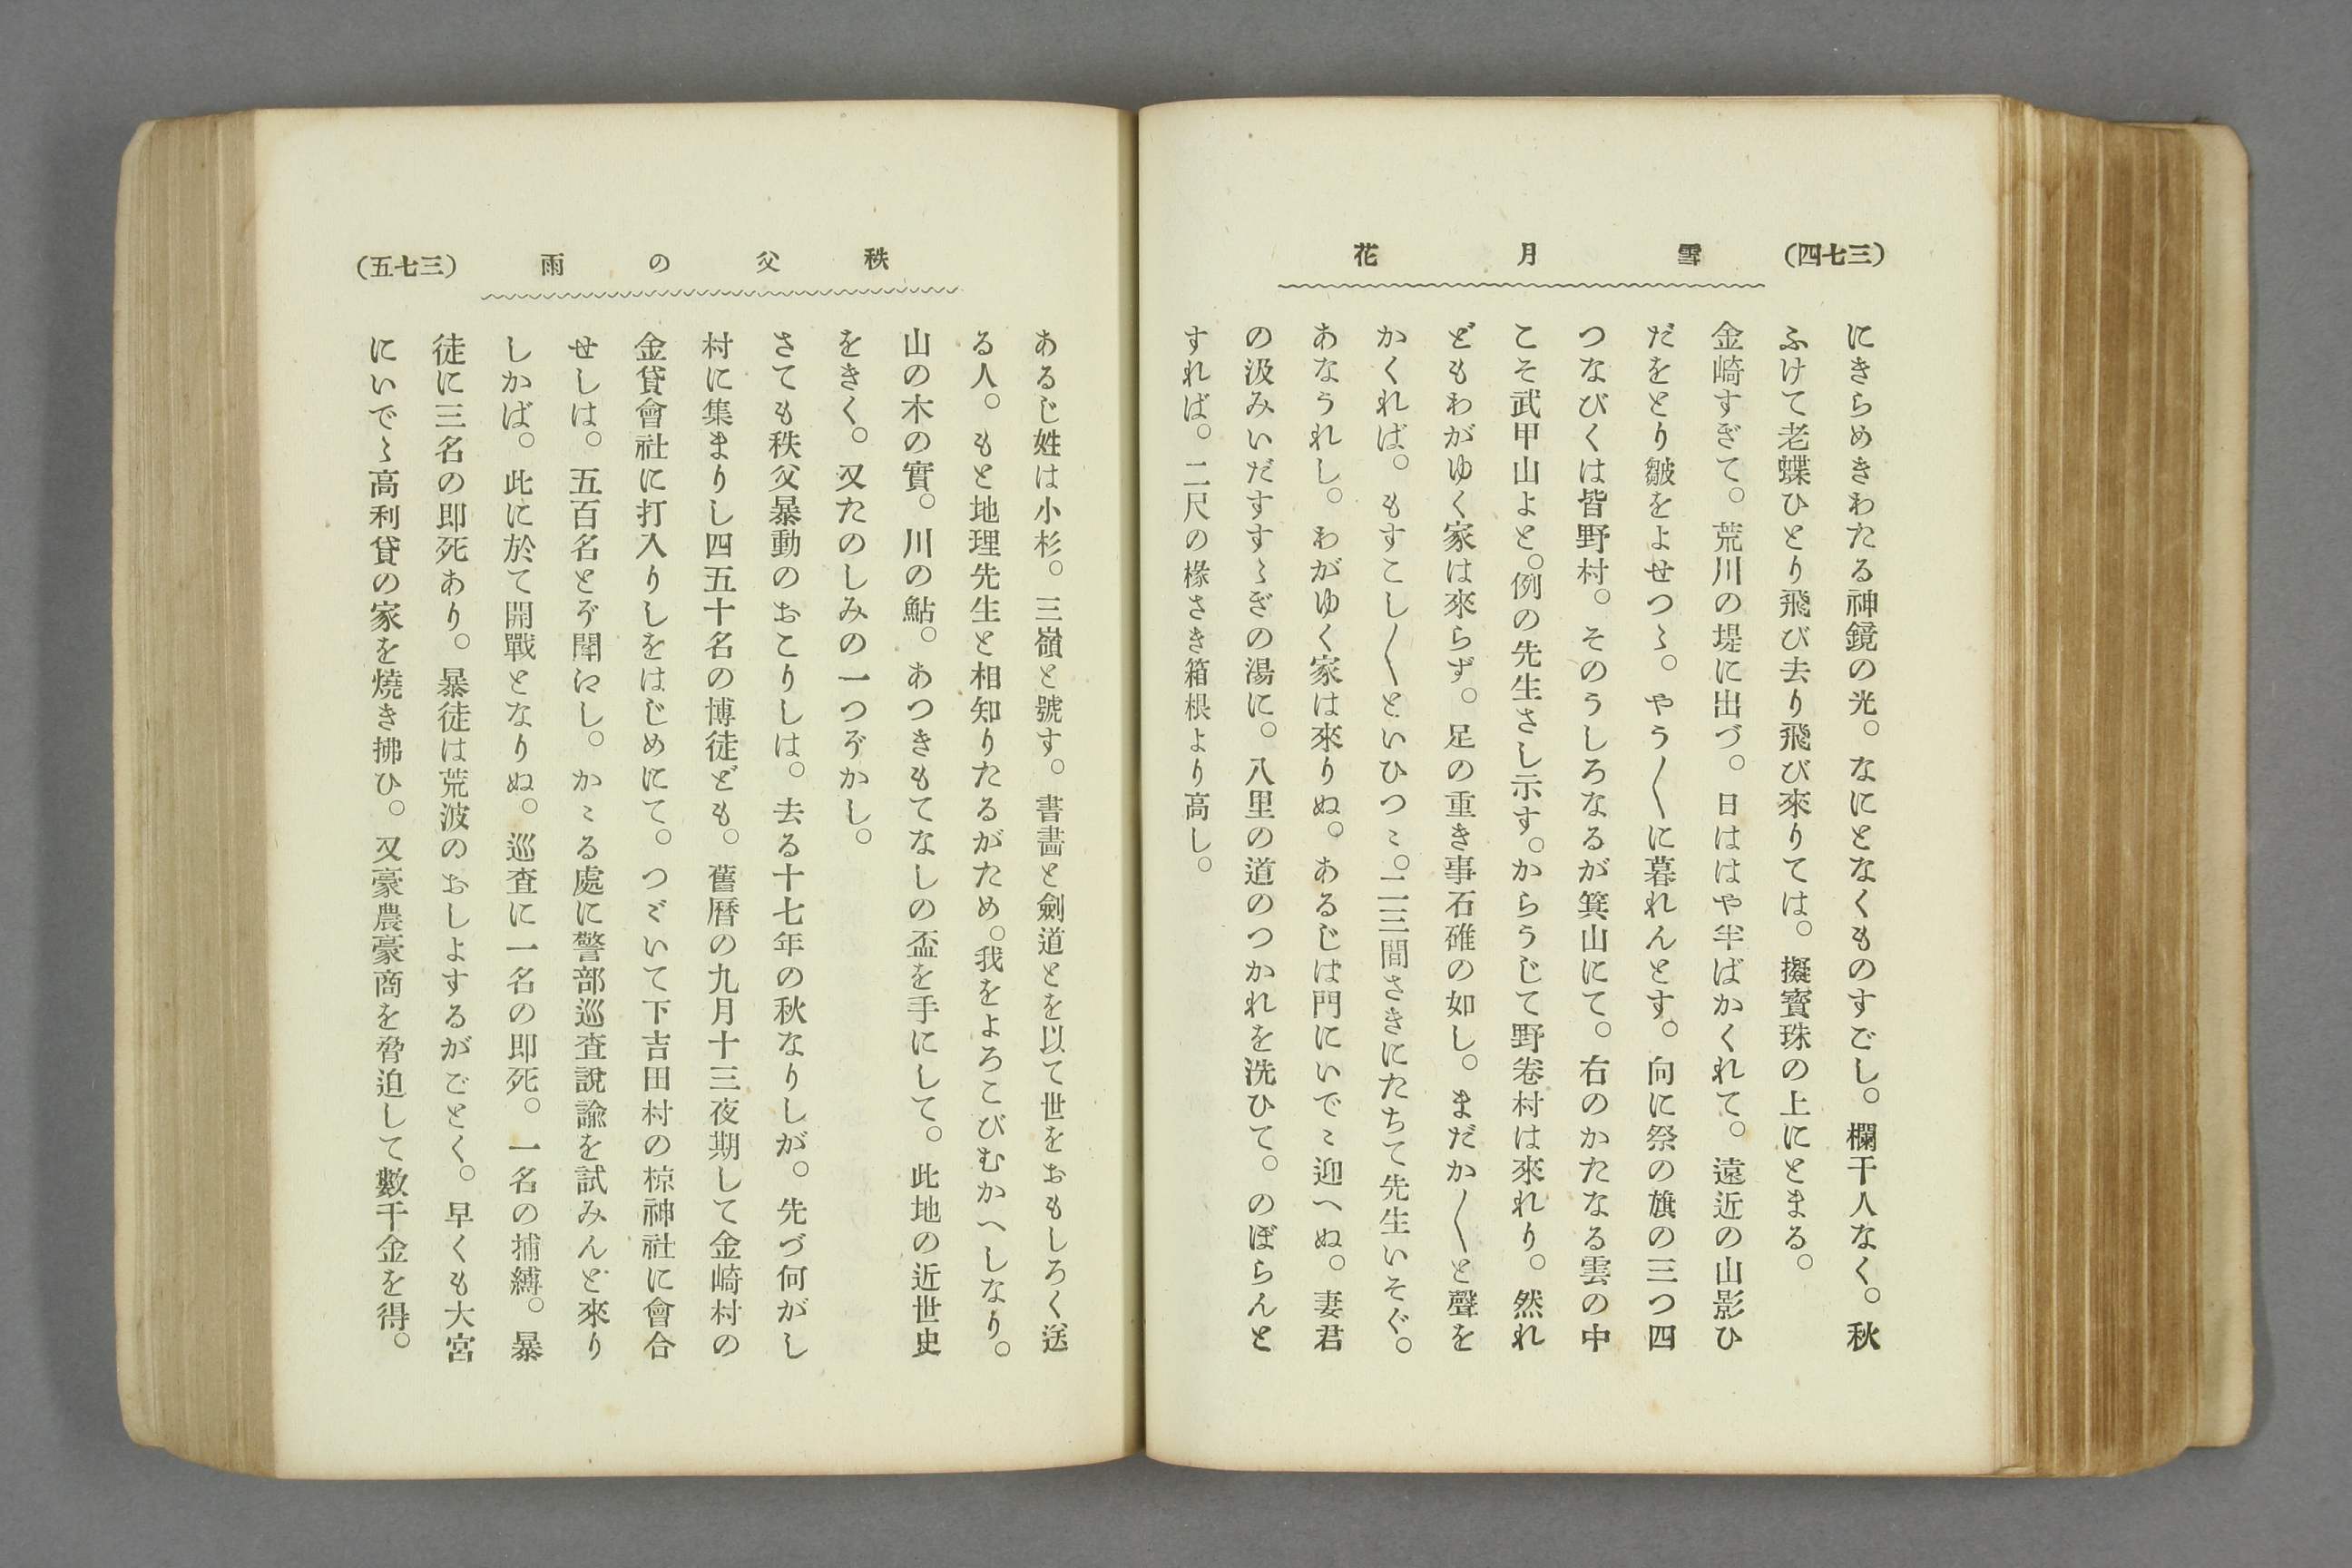 (三七四) 雪月花
にきらめきわたる神鏡の光。なにとなくものすごし。欄干人なく。秋
ふけて老蝶ひとり飛び去り飛び來りては。擬寳珠の上にとまる。
金崎すぎて。荒川の堤に出づ。日ははや半ばかくれて。遠近の山影ひ
だをとり皺をよせつゝ。やう〳〵に暮れんとす。向に祭の旗の三つ四
つなびくは皆野村。そのうしろなるが箕山にて。右のかたなる雲の中
こそ武甲山よと。例の先生さし示す。からうじて野卷村は來れり。然れ
どもわがゆく家は來らず。足の重き事石碓の如し。まだか〳〵と聲を
かくれば。もすこし〳〵といひつゝ。二三間さきにたちて先生いそぐ。
あなうれし。わがゆく家は來りぬ。あるじは門にいでゝ迎へぬ。妻君
の汲みいだすすゝぎの湯に。八里の道のつかれを洗ひて。のぼらんと
すれば。二尺の椽さき箱根より高し。
秩父の雨 (三七五)
あるじ姓は小杉。三嶺と號す。書畵と劍道とを以て世をおもしろく送
る人。もと地理先生と相知りたるがため。我をよろこびむかへしなり。
山の木の實。川の鮎。あつきもてなしの盃を手にして。此地の近世史
をきく。又たのしみの一つぞかし。
さても秩父暴動のおこりしは。去る十七年の秋なりしが。先づ何がし
村に集まりし四五十名の博徒ども。舊曆の九月十三夜期して金崎村の
金貸會社に打入りしをはじめにて。つゞいて下吉田村の椋神社に會合
せしは。五百名とぞ聞江し。かゝる處に警部巡査說諭を試みんど來り
しかば。此に於て開戰となりぬ。巡査に一名の即死。一名の捕縛。暴
徒に三名の即死あり。暴徒は荒波のおしよするがごとく。早くも大宮
にいでゝ高利貸の家を燒き拂ひ。又豪農豪商を脅迫して數千金を得。